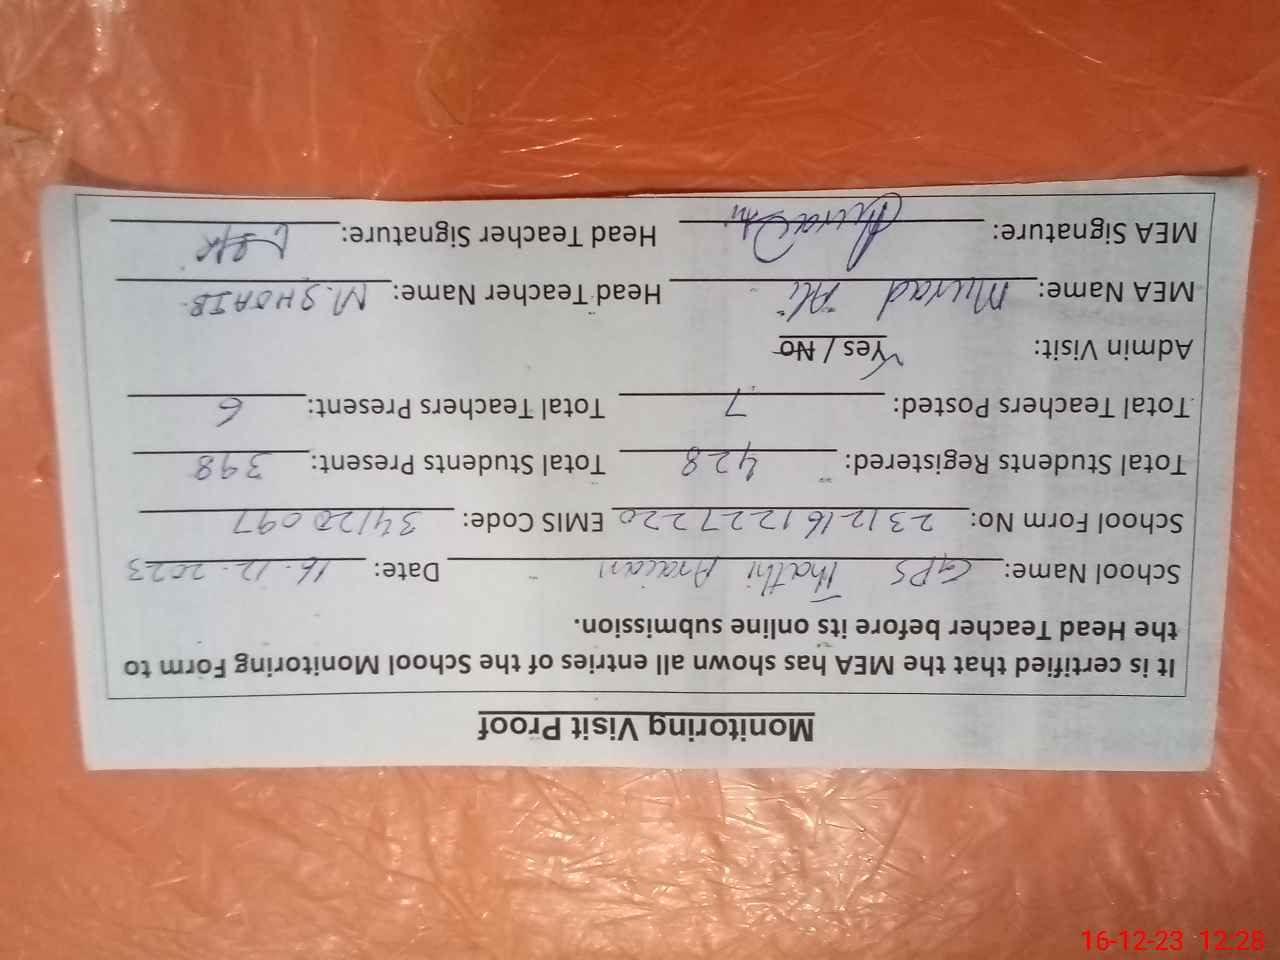 Monitoring Visit Proof
It is certified that the MEA has shown all entries of the School Monitoring Form to
the Head Teacher before its online submission.
School Name: GPS Thathi Araian Date: 16-12-2023
School Form No: 2312161227220 EMIS Code: 34120097
Total Students Registered: 428 Total Students Present: 398
Total Teachers Posted: 7 Total Teachers Present: 6
Admin Visit: Yes / No
MEA Name: Murad Ali Head Teacher Name: M.SHOAIB
MEA Signature: Head Teacher Signature:
16-12-23 12:28